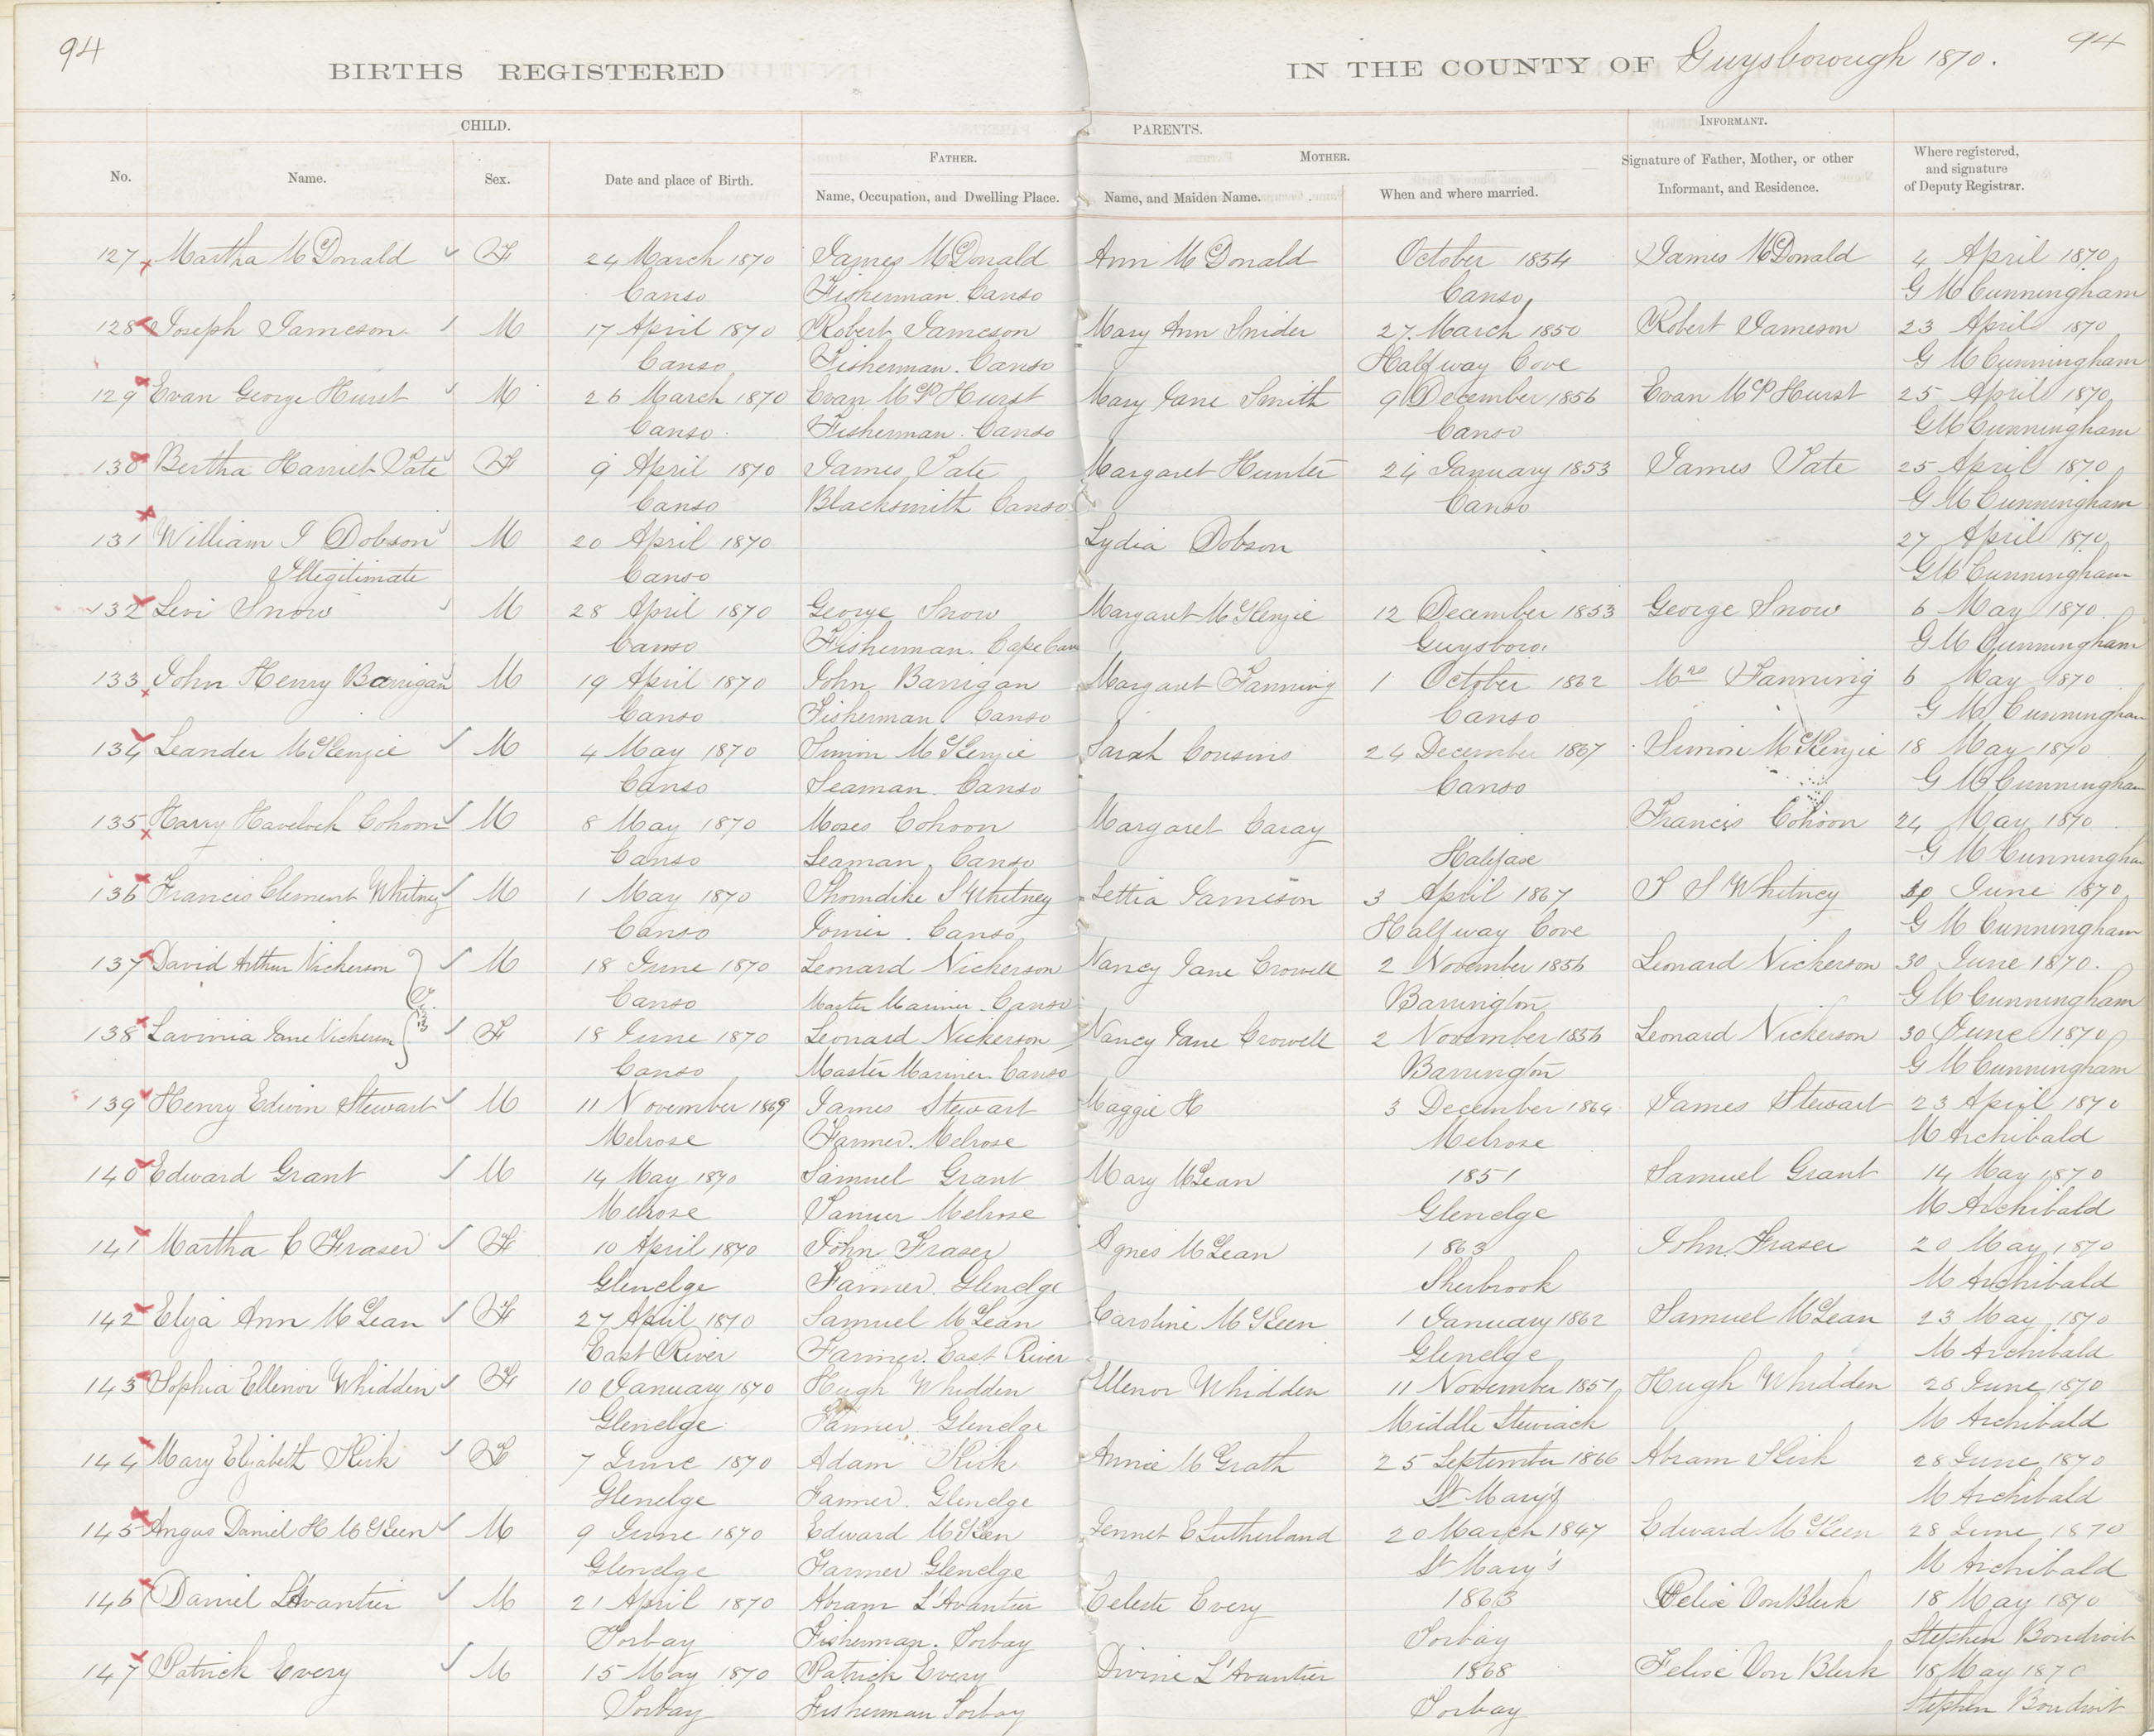 94
94
BIRTHS REGISTERED
IN THE COUNTY OF Guysborough 1870.
CHILD.
PARENTS.
INFORMANT.
FATHER.
MOTHER.
No.
Name.
Sex.
Date and place of Birth.
Name, Occupation, and Dwelling Place.
Name, and Maiden Name.
When and where married.
Signature of Father, Mother, or other
Informant, and Residence.
Where registered,
and signature
of Deputy Registrar.
127 Martha McDonald F 24 March 1870 James McDonald Ann McDonald October 1854 James McDonald 4 April 1870
Canso Fisherman. Canso Canso G M Cunningham
128 Joseph Jameson M 17 April 1870 Robert Jameson Mary Ann Snider 27. March 1850 Robert Jameson 23 April 1870
Canso Fisherman. Canso Half way Cove G M Cunningham
129 Evan George Hurst M 26 March 1870 Evan McP Hurst Mary Jane Smith 9 December 1856 Evan McP Hurst 25 April 1870
Canso. Fisherman. Canso Canso G M Cunningham
130 Bertha Harriet Tate F 9 April 1870 James Tate Margaret Hunter 24 January 1853 James Tate 25 April 1870
Canso Blacksmith Canso Canso G M Cunningham
131 William J Dobson M 20 April 1870 Lydia Dobson 27 April 1870
Illegitimate Canso G M Cunningham
132 Levi Snow M 28 April 1870 George Snow Margaret McKenzie 12 December 1853 George Snow 6 May 1870
Canso Fisherman. Cape Can Guysboro. G M Cunningham
133 John Henry Barrigan M 19 April 1870 John Barrigan Margaret Fanning 1 October 1862 Mrs Fanning 6 May 1870
Canso Fisherman. Canso Canso G M Cunningham
134 Leander McKenzie M 4 May 1870 Simon McKenzie Sarah Cousins 24 December 1867 Simon McKenzie 18 May 1870
Canso Seaman. Canso Canso G M Cunningham
135 Harry Havelock Cohoon M 8 May 1870 Moses Cohoon Margaret Caray Francis Cohoon 24 May 1870
Canso Seaman. Canso Halifax G M Cunningham
136 Francis Clement Whitney M 1 May 1870 Thorndike S Whitney Lettia Jamison 3 April 1867 T S Whitney June 1870
Canso Joiner. Canso Half way Cove G M Cunningham
137 David Arthur Nickerson M 18 June 1870 Leonard Nickerson Nancy Jane Crowell 2 November 1856 Leonard Nickerson 30 June 1870.
Canso Master Mariner. Canso Barrington G M Cunningham
138 Lavinia Jane Nickerson F 18 June 1870 Leonard Nickerson Nancy Jane Crowell 2 November 1856 Leonard Nickerson 30 June 1870
Canso Master Mariner. Canso Barrington G M Cunningham
139 Henry Edwin Stewart M 11 November 1869 James Stewart Maggie H 3 December 1864 James Stewart 23 April 1870
Melrose Farmer. Melrose Melrose M Archibald
140 Edward Grant M 14 May 1870 Samuel Grant Mary McLean 1851 Samuel Grant 14 May 1870
Melrose Farmer Melrose Glenelge M Archibald
141 Martha C Fraser F 10 April 1870 John Fraser Agnes McLean 1863 John Fraser 20 May 1870
Glenelge Farmer. Glenelge Sherbrook M Archibald
142 Eliza Ann McLean F 27 April 1870 Samuel McLean Caroline McKeen 1 January 1862 Samuel McLean 23 May 1870
East River Farmer. East River Glenelge M Archibald
143 Sophia Ellenor Whidden F 10 January 1870 Hugh Whidden Ellenor Whidden 11 November 1851 Hugh Whidden 28 June 1870
Glenelge Farmer. Glenelge Middle Stewiack M Archibald
144 Mary Elizabeth Kirk F 7 June 1870 Adam Kirk Annie McGrath 25 September 1866 Abram Kirk 28 June 1870
Glenelge Farmer. Glenelge St Mary's M Archibald
145 Angus Daniel H McKeen M 9 June 1870 Edward McKeen Jennet E Sutherland 20 March 1847 Edward McKeen 28 June 1870
Glenelge Farmer Glenelge St Mary's M Archibald
146 Daniel L'Avantier M 21 April 1870 Abram L'Avantier Celeste Every 1863 Felix Von Blerk 18 May 1870
Torbay Fisherman. Torbay Torbay Stephen Bondroit
147 Patrick Every M 15 May 1870 Patrick Every Divine L'Avantier 1868 Felix Von Blerk 18 May 1870
Torbay Fisherman Torbay Torbay Stephen Bondroit